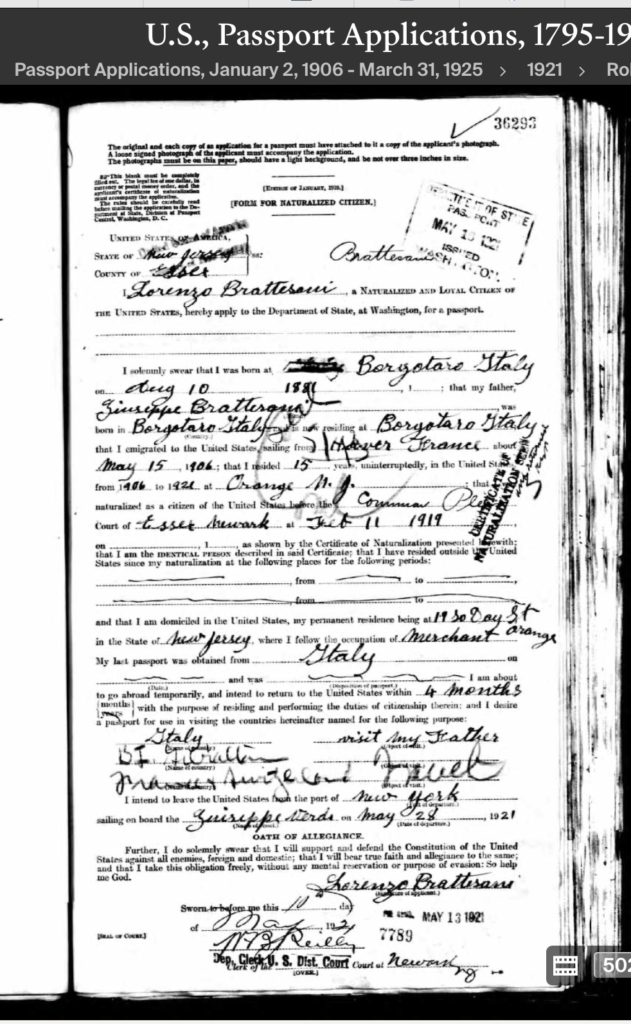 U.S., Passport Applications, 1795-19
Passport Applications, January 2, 1906 - March 31, 1925 > 1921 > Rol
36293
The original and each copy of an application for a passport must have attached to it a copy of the applicant's photograph.
A loose signed photograph of the applicant must accompany the application.
The photographs must be on thin paper, should have a light background, and be not over three inches in size.
This blank must be completely
filled out. The legal fee of one dollar, in
currency or postal money order, and the
applicant's certificate of naturalization
must accompany the application.
The rules should be carefully read
before mailing the application to the De-
partment of State, Division of Passport
Control, Washington, D. C.
[FORM FOR NATURALIZED CITIZEN.]
DEPARTMENT OF STATE
PASSPORT
MAY 13 1921
ISSUED
WASHINGTON
UNITED STATES OF AMERICA,
STATE OF New Jersey
COUNTY OF Essex
Brattesani
I, Lorenzo Brattesani, a NATURALIZED AND LOYAL CITIZEN OF
THE UNITED STATES, hereby apply to the Department of State, at Washington, for a passport.
I solemnly swear that I was born at Borgotaro Italy
on Aug 10 1881, ; that my father,
Giuseppe Brattesani was
born in Borgotaro Italy is now residing at Borgotaro Italy
that I emigrated to the United States, sailing from Haver France about
May 15, 1906; that I resided 15 years, uninterruptedly, in the United States
from 1906 to 1921 at Orange N. J. that I
naturalized as a citizen of the United States before the Common Pleas
Court of Essex Newark at Feb 11 1919
CERTIFICATE OF
NATURALIZATION SEEN
on , 1 , as shown by the Certificate of Naturalization presented herewith;
that I am the IDENTICAL PERSON described in said Certificate; that I have resided outside the United
States since my naturalization at the following places for the following periods:
, from to ,
, from to ,
and that I am domiciled in the United States, my permanent residence being at Day St
Orange
in the State of New Jersey, where I follow the occupation of Merchant
My last passport was obtained from Italy on
(Date.) and was (Disposition of passport.) I am about
to go abroad temporarily, and intend to return to the United States within 4 months
{months
years} with the purpose of residing and performing the duties of citizenship therein; and I desire
a passport for use in visiting the countries hereinafter named for the following purpose:
Italy visit my Father
(Name of country.) (Object of visit.)
(Name of country.) (Object of visit.)
I intend to leave the United States from the port of New York
(Port of departure.)
sailing on board the Guiseppe Verdi on May 28, 1921
(Name of vessel.) (Date of departure.)
OATH OF ALLEGIANCE.
Further, I do solemnly swear that I will support and defend the Constitution of the United
States against all enemies, foreign and domestic; that I will bear true faith and allegiance to the same;
and that I take this obligation freely, without any mental reservation or purpose of evasion: So help
me God.
Lorenzo Brattesani
(Signature of applicant.)
Sworn to before me this 10 day
of May, 1921
MAY 13 1921
7789
W B Reilly
[SEAL OF COURT.]
Dep. Clerk U. S. Dist. Court
Clerk of the Court at Newark
NJ
(OVER.)
502